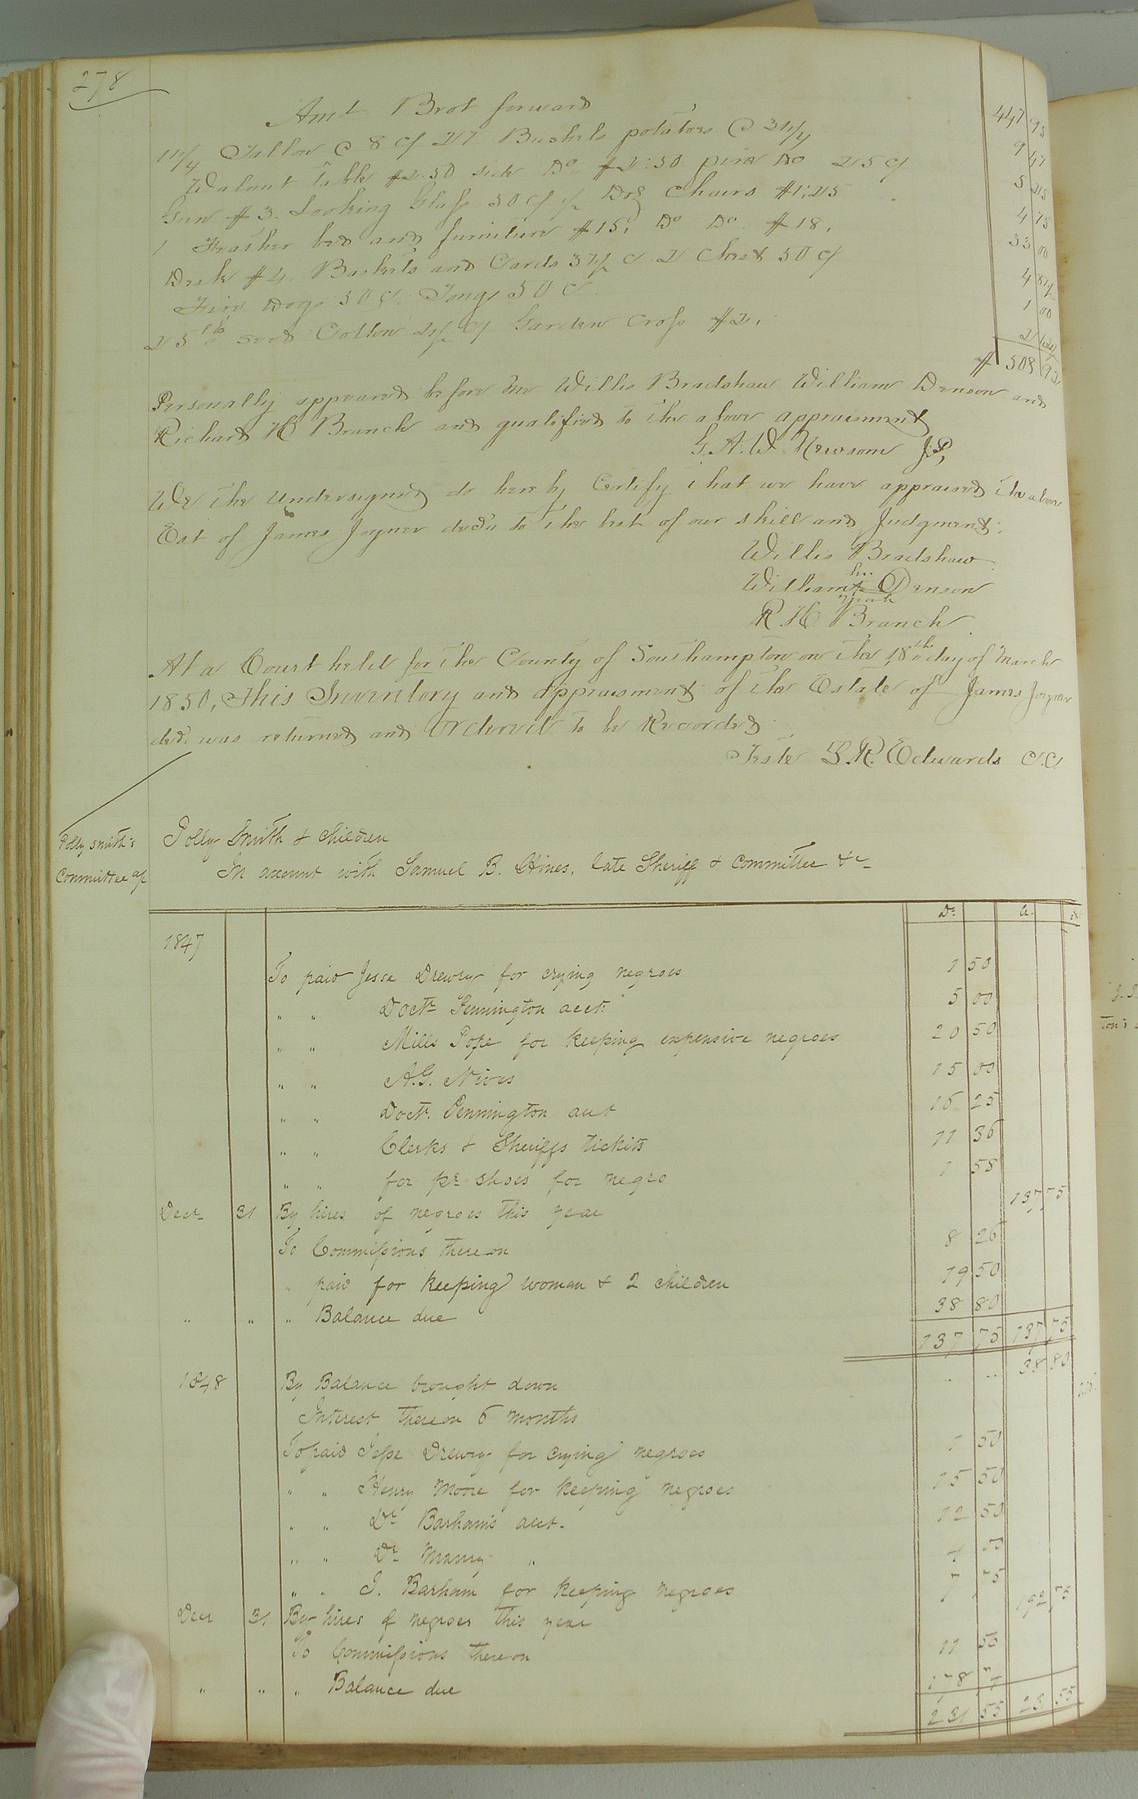 278
Amt Brot forward 447 95
Tallow @ 8 c/ 27 Bushels potatoes @
Walnut Table $2.50 side Do $2.50 pine Do 25 c/
Gun $3. Looking Glass 50 c/ ½ Doz Chairs $1.25
1 Feather bed and furniture $15, Do Do $18, 33 00
Desk $4. Baskets and Cards 37½ c 2 Chest 50 c/
Fire Dogs 50 c/. Tongs 50 c. 1 00
25 lb seed Cotton c/ Garden Cross $2.
$ 508
Personally appeared before me Willis Bradshaw William Denson and
Richard H Branch and qualified to the above appraisment
G. A. W. Newsom J.P,
We the undersigned do hereby Certify that we have appraised the above
Est of James Joyner decd. to the best of our skill and Judgment.
Willis Bradshaw
his
William x Denson
mark
R. H Branch
At a Court held for the County of Southampton on the 18th day of March
1850, This Inventory and appraisment of the Estate of James Joyner
decd. was returned and Ordered to be Recorded
Teste L. R. Edwards C.C
Polly Smith's
Committee a/c
Polly Smith & children
In account with Samuel B. Hines, late Sheriff & Committee &c
Dr. Cr.
1847
To paid Jesse Drewry for crying negroes 1 50
" " Doctr Pennington acct. 5 00
" " Mills Pope for keeping expensive negroes 20 50
" " A.G. 15 00
" " Doctr. Pennington acct 16 25
" " Clerks & Sheriffs tickets 11 36
" " for pr. shoes for negro 1 58
Decr 31 By hires of negroes this year 137 75
To Commissions thereon 8 26
" paid for keeping woman & 2 children 19 50
" " " Balance due 38 80
137 75 137 75
1848 By Balance brought down 38 80
Interest thereon 6 months
To paid Jesse Drewry for crying negroes 1 50
" " Henry Moore for keeping negroes 15 50
" " Dr Barham's acct. 12 50
" " Dr "
" " J. Barham for keeping negroes
Decr 31 By hires of negroes this year 192 75
To Commissions thereon 11 56
" " " Balance due
231 55 231 55